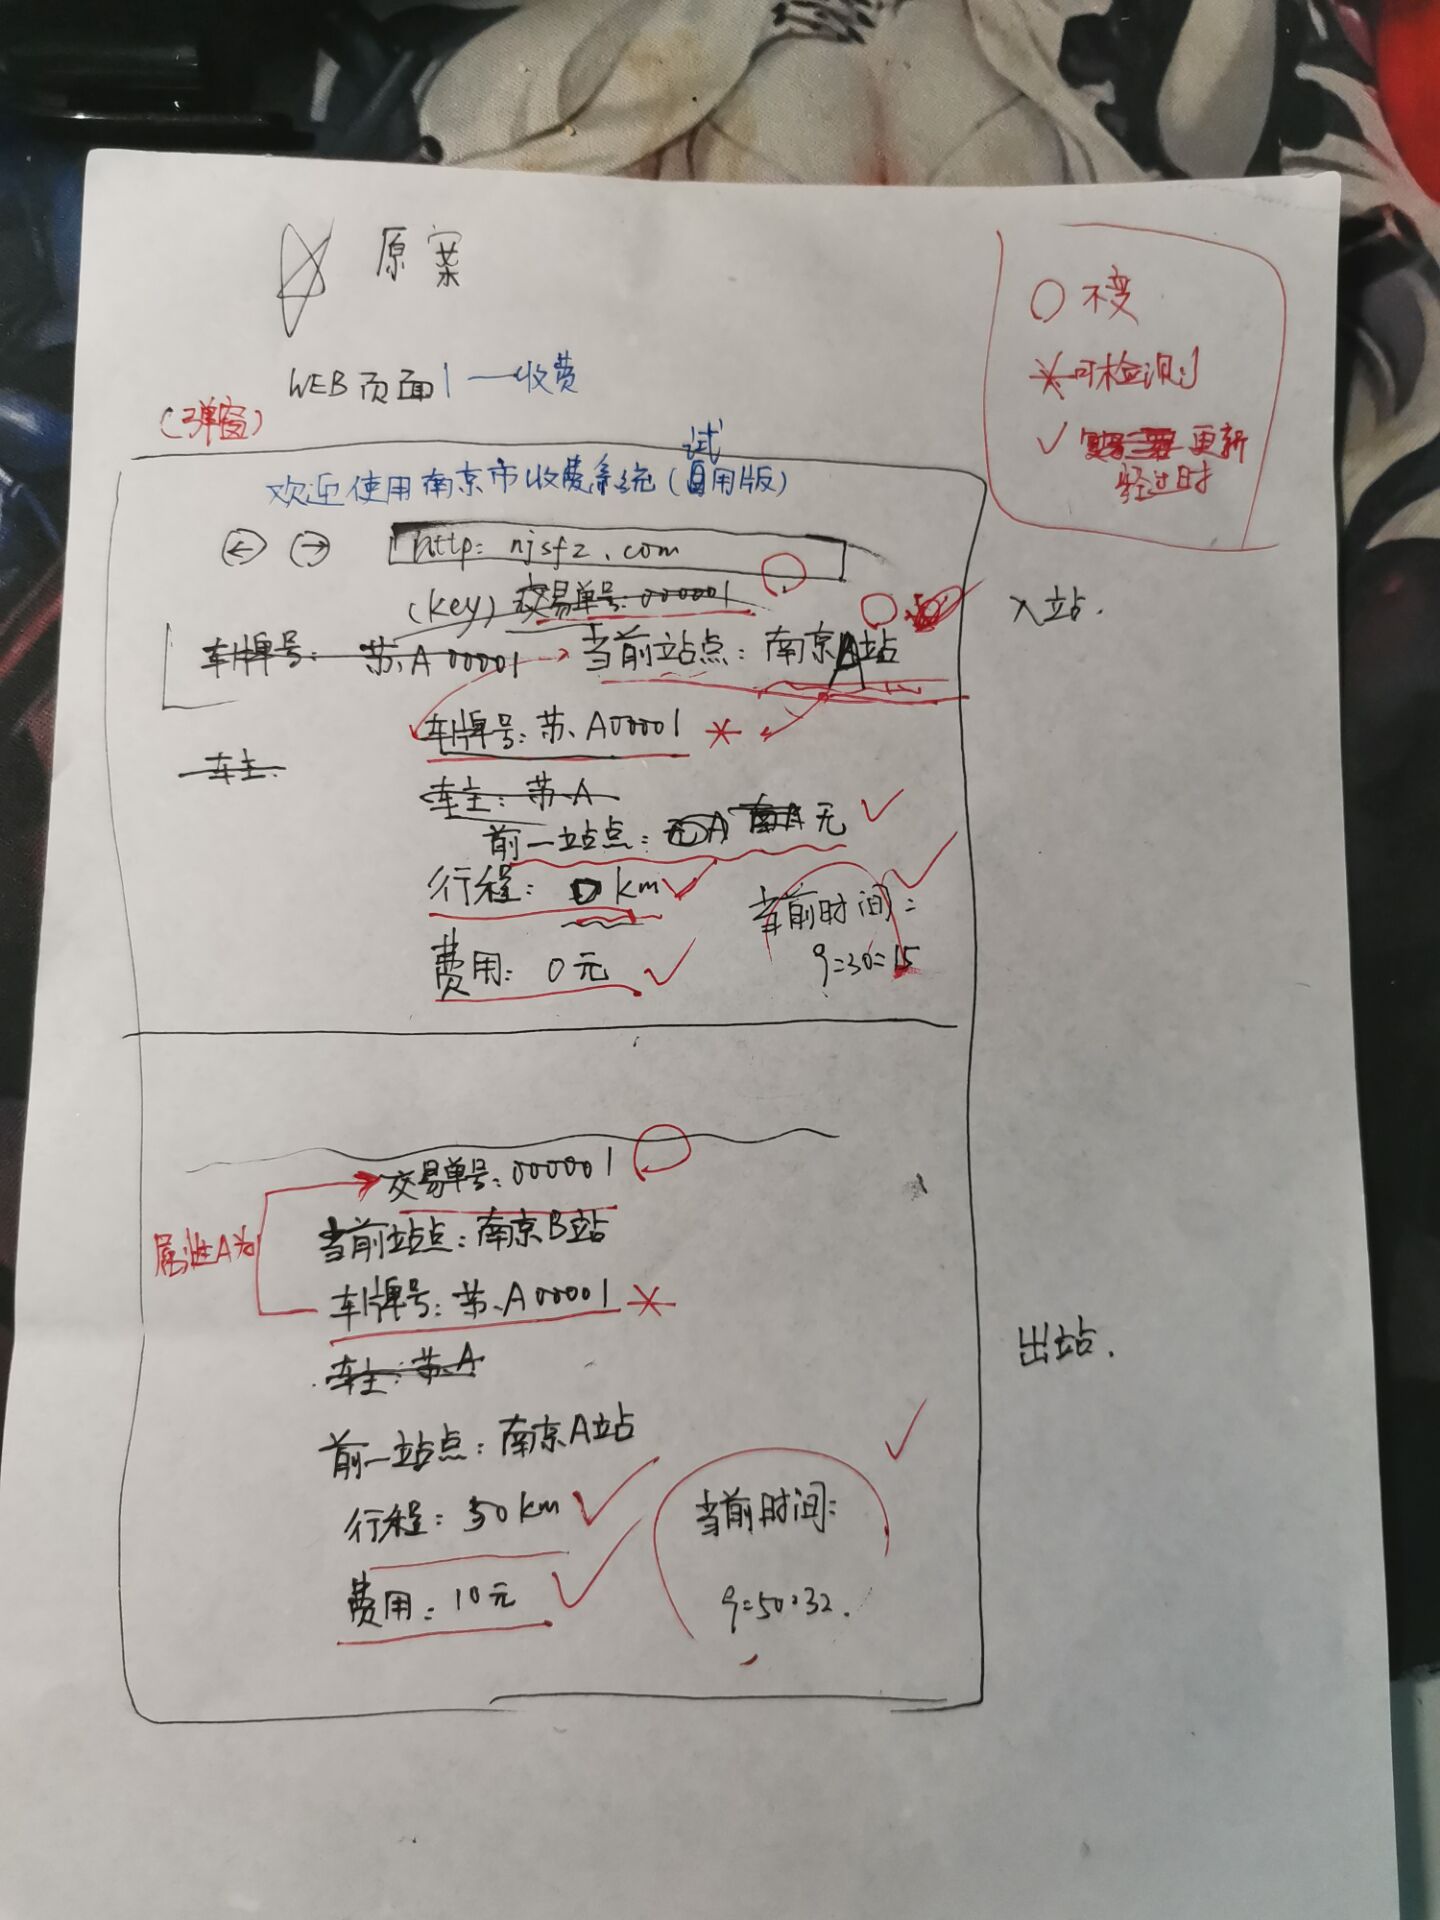 原案
○ 不变
* 可检测
✓ 更新
经过时
WEB页面1—收费
(弹窗)
试
欢迎使用南京市收费系统(用版)
← →
http: njsfz.com
(key) 交易单号: 000001
入站.
车牌号: 苏.A 00001 → 当前站点: 南京A站
车牌号: 苏.A00001 *
车主:
车主: 苏.A
前一站点: 无 ✓
行程: 0 km ✓
当前时间:
9:30:15
费用: 0元 ✓
交易单号: 000001
属性A为
当前站点: 南京B站
车牌号: 苏.A00001 *
车主: 苏.A
出站.
前一站点: 南京A站
行程: 50km ✓
当前时间:
费用: 10元 ✓
9:50:32.